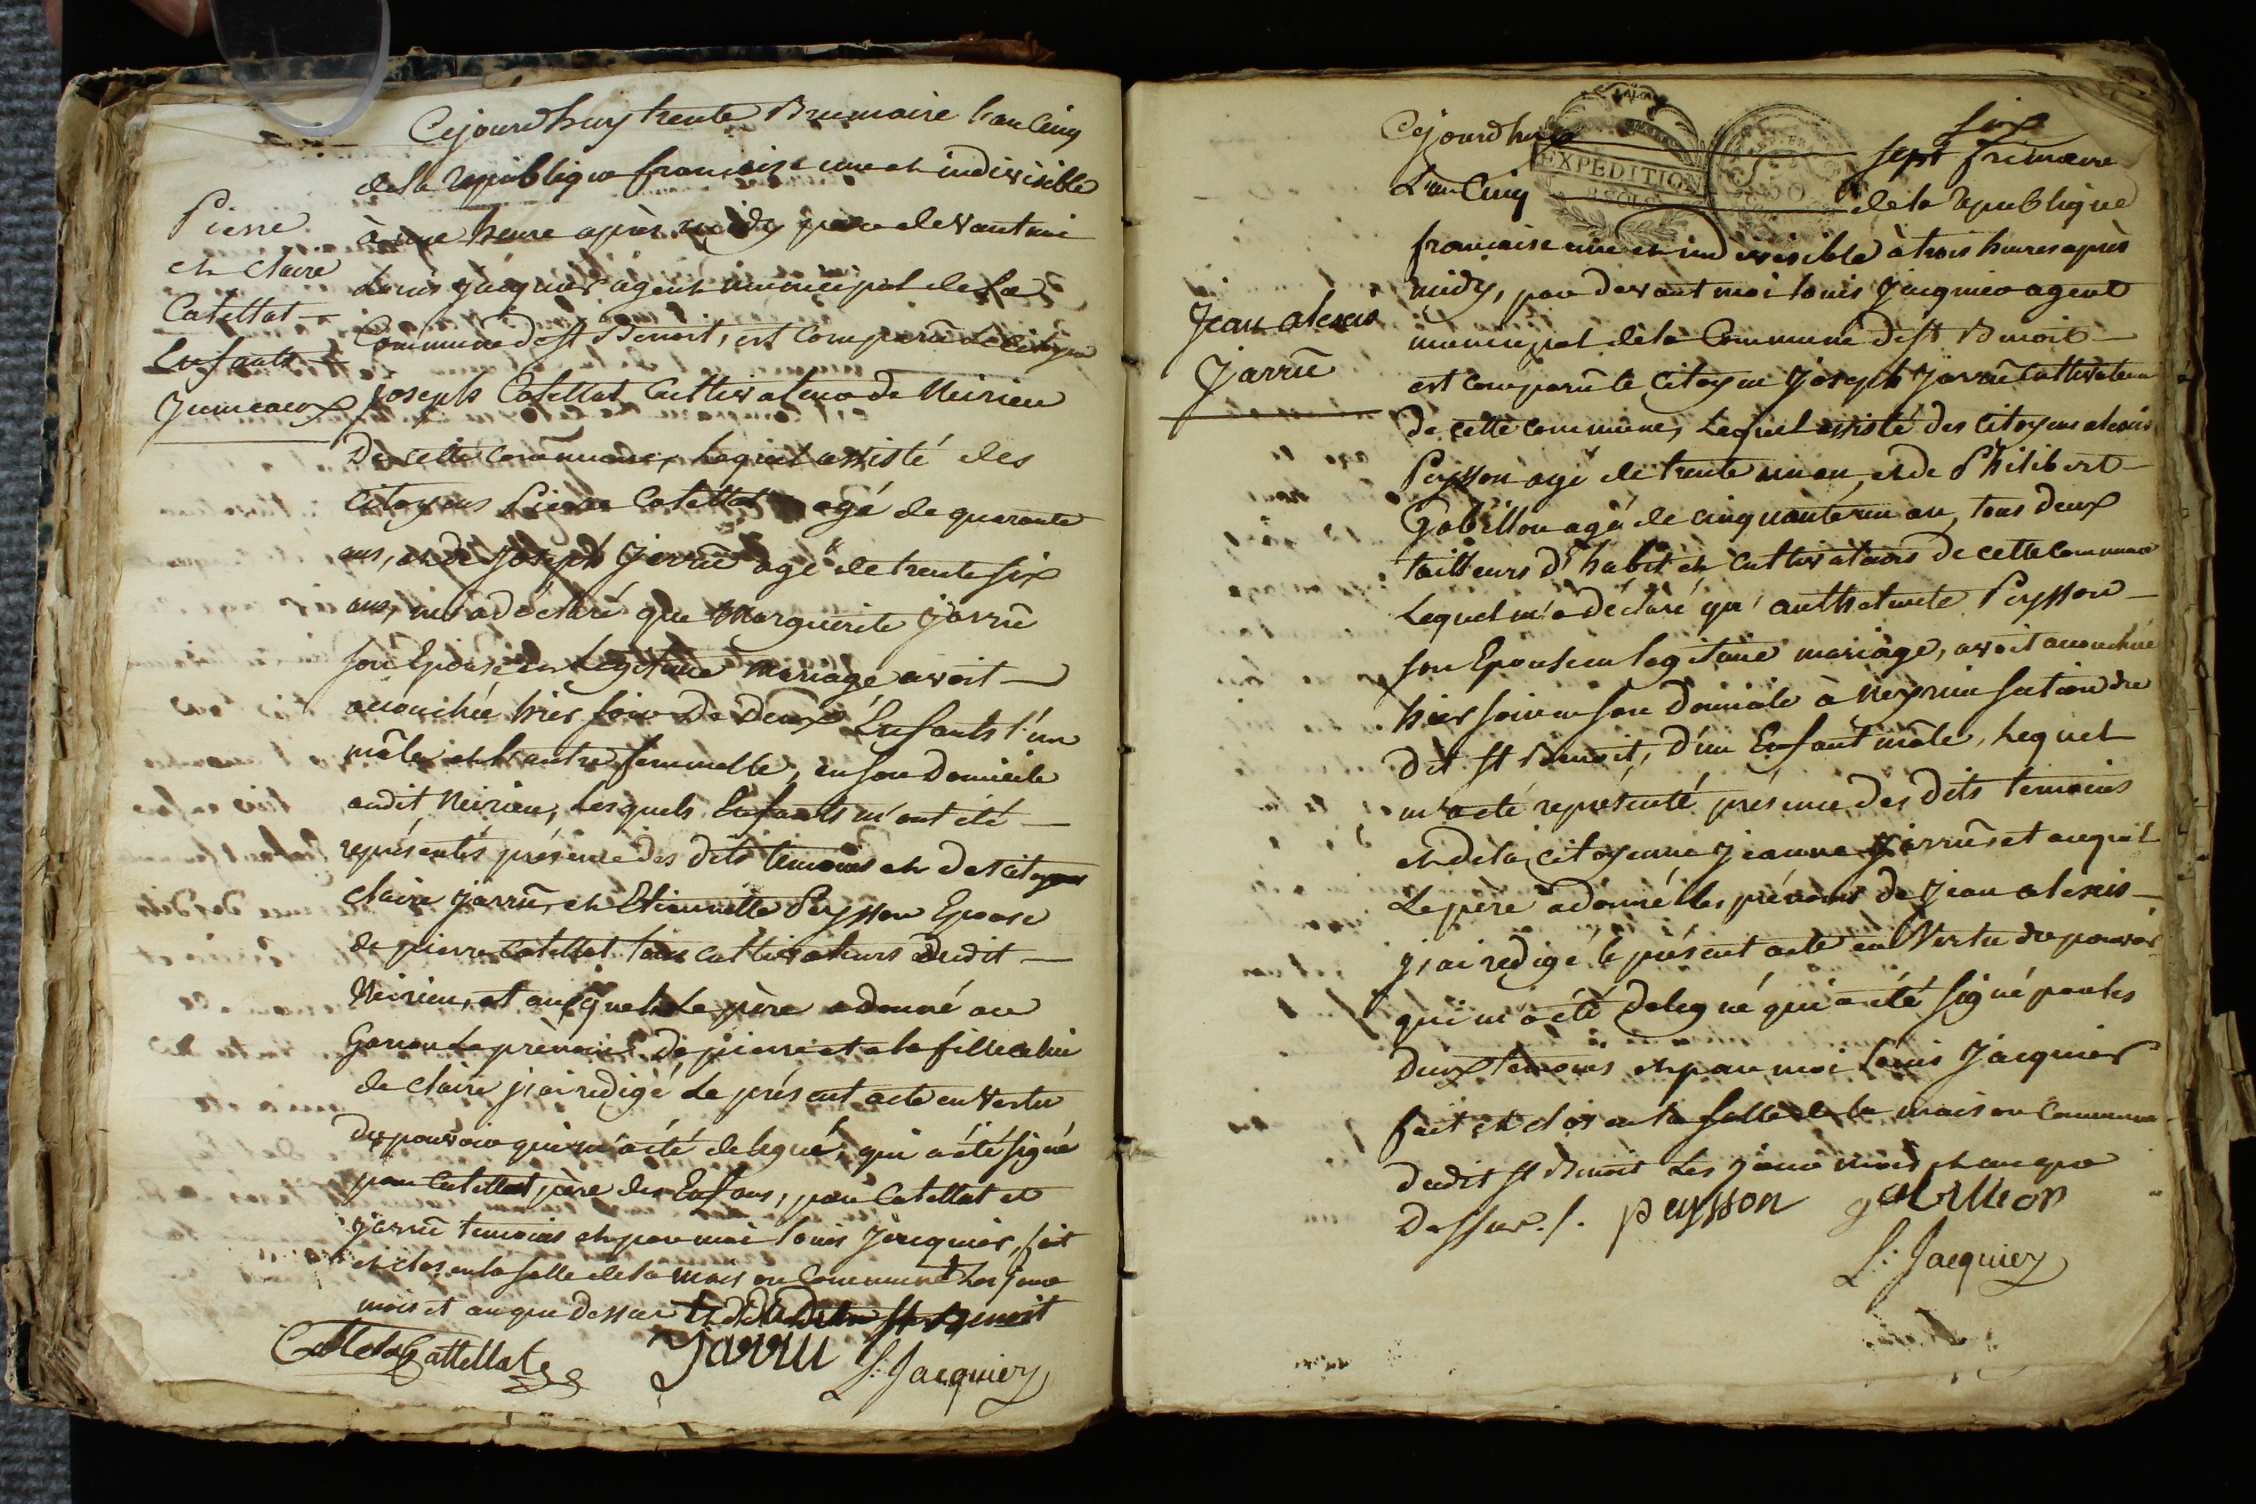 Cejourdhuy trente Brumaire l'an Cinq
de la republique francaise une et indivisible
à une heure après midy par devant moi
Louis Jacquier agent municipal de la
Commune de st Benoit, est comparu le citoyen
Joseph Catellat Cultivateur de Neirieu
De cette commune, lequel assisté des
Citoyens Pierre Catellat agé de quarante
ans, et de Joseph Jarrû agé de trente six
ans, m'a déclaré que Marguerite Jarrû
son Epouse en Legitime Mariage avoit
accouchée hier soir de deux Enfants l'un
mâle et l'autre femmelle, en son Domicile
audit Neirieu, lesquels Enfants m'ont été
représentés présence des dits temoins et des citoyens
Claire Jarrû, et Etiennette Peysson Epouse
de pierre Catellat tous cultivateurs dudit
Neirieu, et auquels Le père a donné au
Garcon Le prénom De pierre et a la fille celui
de Claire j'ai redigé Le présent acte en vertu
Du pouvoir qui m'a été delegué, qui a été signé
par Catellat père des Enfans, par Catellat et
Jarrû temoins et par moi Louis Jacquier, fait
et clos en la salle de la maison Commune Les jour
mois et an que dessus st Benoit
Pierre
et Claire
Catellat
Enfants
Jumeaux
Catellat Cattellat
Jarru
L: Jacquier
EXPEDITION
Cejourdhuy six
sept frimaire
L'an Cinq de la republique
francaise une et indivisible à trois heures après
midy, par devant moi Louis Jacquier agent
municipal de la Commune de st Benoit
est comparu le Citoyen Joseph Jarrû Cultivateur
de cette commune, Lequel assisté des Citoyens alexis
Peysson agé de trente un an, et de Philibert
Gobillon agé de cinquante un an, tous deux
tailleurs d'habit et Cultivateurs de cette commune
Lequel m'a déclaré qu' Peysson
son Epouse en legitime mariage, avoit accouchée
hier soir en son Domicile à section du
Dit st Benoit, d'un Enfant mâle, lequel
m'a été représenté présence des Dits temoins
et de la citoyenne Jeanne Jarrû et auquel
Le père a donné les prénoms de Jean alexis
j'ai redigé le présent acte en Vertu du pouvoir
qui m'a été delegué qui a été signé par les
Deux temoins et par moi Louis Jacquier
fait et clos en la salle de la maison Commune
dudit st Benoit Les jour mois et an que
Dessus ./. peysson gobillion
L: Jacquier
Jean alexis
Jarrû